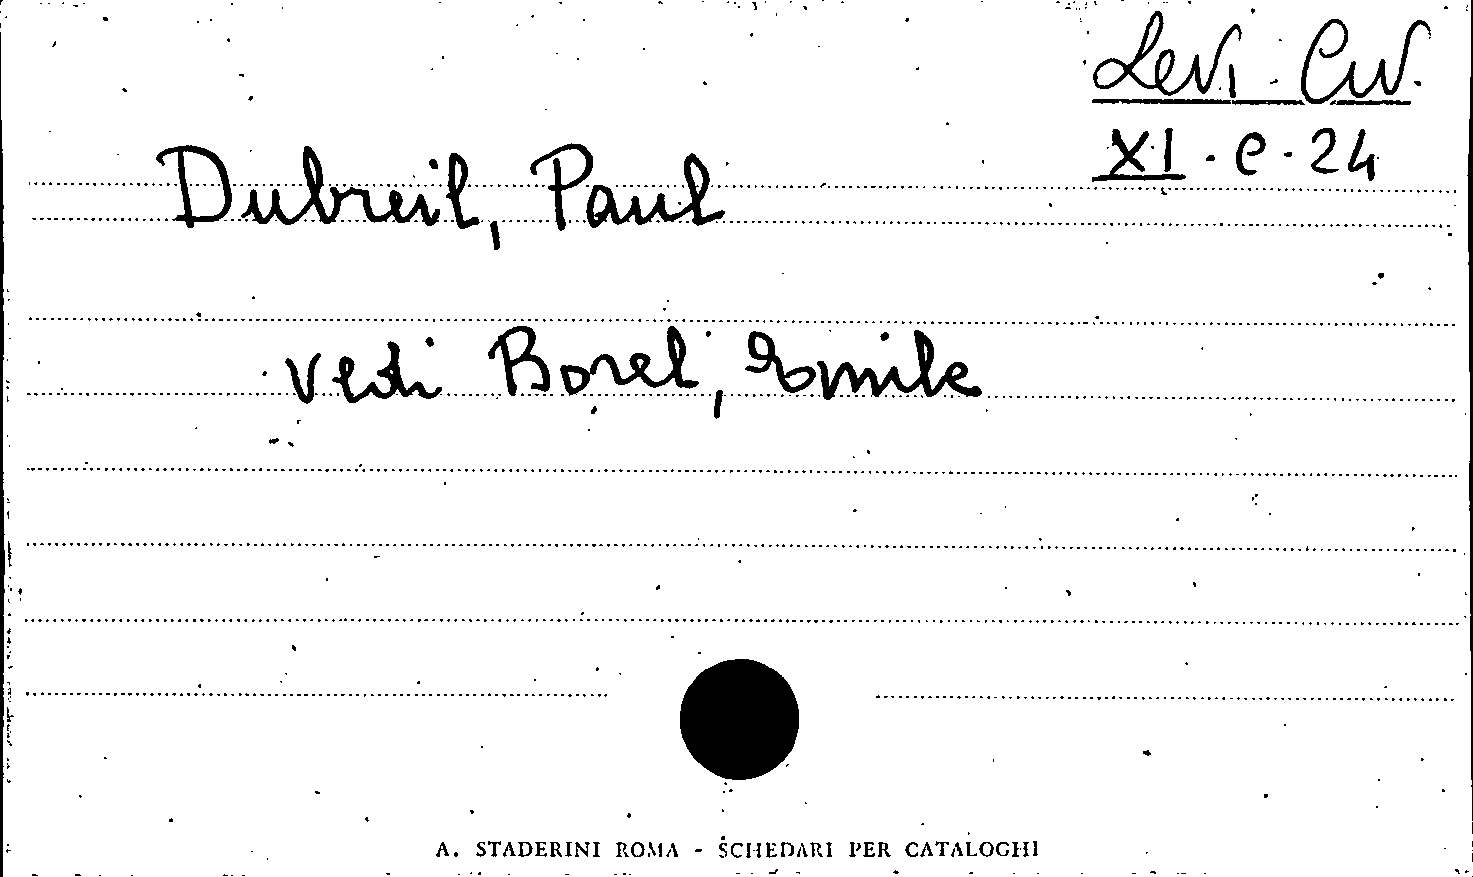 Levi. Civ.
XI. C. 24
Dubreil, Paul
vedi Borel, Emile
A. STADERINI ROMA - SCHEDARI PER CATALOGHI